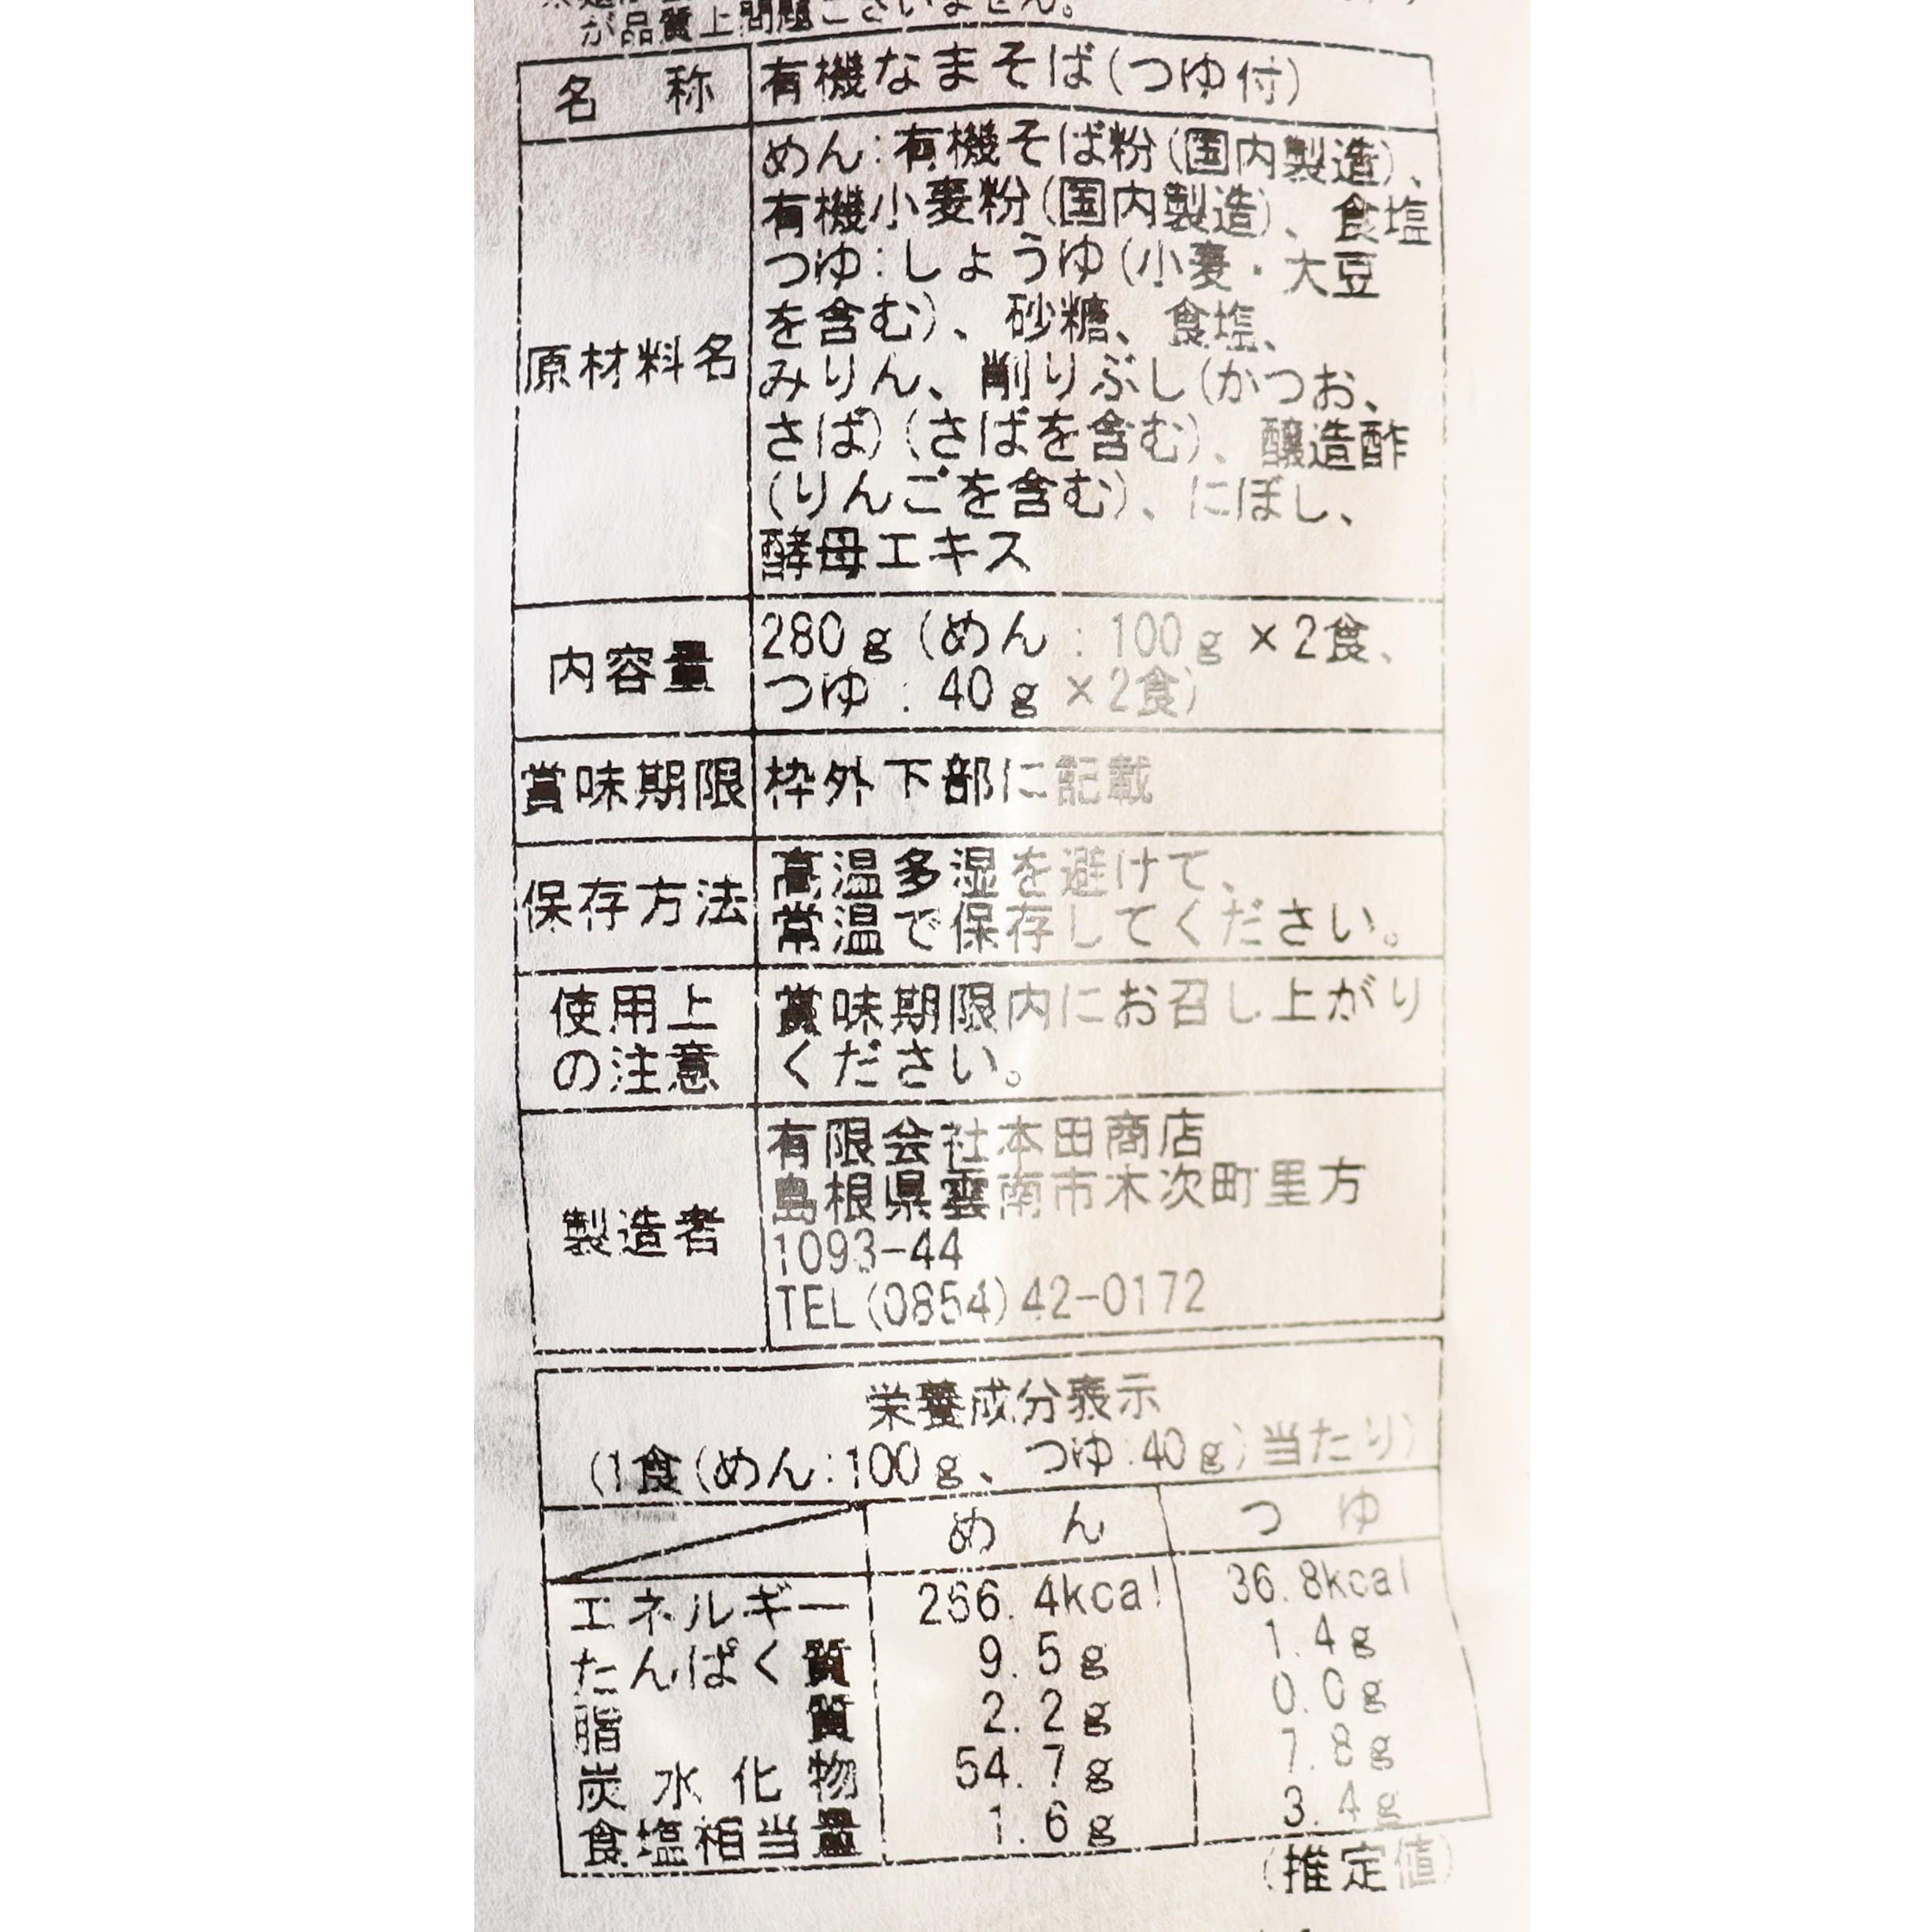 が品質上問題ございません。
名 称 有機なまそば(つゆ付)
原材料名
めん:有機そば粉(国内製造)、
有機小麦粉(国内製造)、食塩
つゆ:しょうゆ(小麦・大豆
を含む)、砂糖、食塩、
みりん、削りぶし(かつお、
さば)(さばを含む)、醸造酢
(りんごを含む)、にぼし、
酵母エキス
内容量
280g(めん:100g×2食、
つゆ:40g×2食)
賞味期限 枠外下部に記載
保存方法
高温多湿を避けて、
常温で保存してください。
使用上
の注意
賞味期限内にお召し上がり
ください。
製造者
有限会社本田商店
島根県雲南市木次町里方
1093-44
TEL(0854)42-0172
栄養成分表示
(1食(めん:100g、つゆ:40g)当たり)
めん つゆ
エネルギー 266.4kcal 36.8kcal
たんぱく質 9.5g 1.4g
脂質 2.2g 0.0g
炭水化物 54.7g 7.8g
食塩相当量 1.6g 3.4g
(推定値)